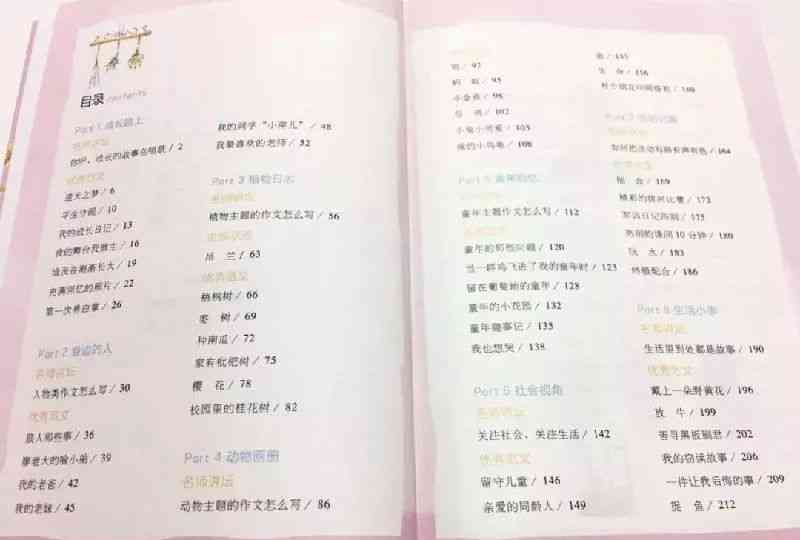 目录 contents
Part 1 成长路上
名师讲坛
你听，成长的故事在唱歌 / 2
优秀范文
追天之梦 / 6
寻宝学园 / 10
我的成长日记 / 13
我的舞台我做主 / 16
谁没有渐渐长大 / 19
充满回忆的照片 / 22
第一次养蚕宝 / 26
Part 2 身边的人
名师讲坛
人物类作文怎么写 / 30
优秀范文
狼人那些事 / 36
廖老大的喻小船 / 39
我的老爸 / 42
我的老妹 / 45
我的同学“小辣儿” / 48
我最喜欢的老师 / 52
Part 3 植物日志
名师讲坛
植物主题的作文怎么写 / 56
名师试笔
吊 兰 / 63
优秀范文
梧桐树 / 66
枣 树 / 69
种南瓜 / 72
家有枇杷树 / 75
樱 花 / 78
校园里的桂花树 / 82
Part 4 动物画册
名师讲坛
动物主题的作文怎么写 / 86
/ 92
蚂 蚁 / 95
小金鱼 / 98
/ 102
小兔小可爱 / 105
我的小乌龟 / 108
Part 5 童年回忆
名师讲坛
童年主题作文怎么写 / 112
优秀范文
童年的那些问题 / 120
当一群鸟飞进了我的童年时 / 123
留在葡萄地的童年 / 128
童年的小花园 / 132
童年糗事记 / 135
我也想哭 / 138
Part 6 社会视角
名师讲坛
关注社会、关注生活 / 142
优秀范文
留守儿童 / 146
亲爱的同龄人 / 149
/ 153
生 命 / 156
有个朋友叫网络君 / 160
Part 7 活动记趣
名师讲坛
如何把活动写得有声有色 / 164
优秀范文
/ 169
精彩的拔河比赛 / 172
军训日记阵列 / 175
热闹的课间10分钟 / 180
玩 水 / 183
终极配合 / 186
Part 8 生活小事
名师讲坛
生活里到处都是故事 / 190
优秀范文
戴上一朵野黄花 / 196
放 牛 / 199
害寻黑板刷君 / 202
我的窃读故事 / 206
一件让我后悔的事 / 209
捉 鱼 / 212